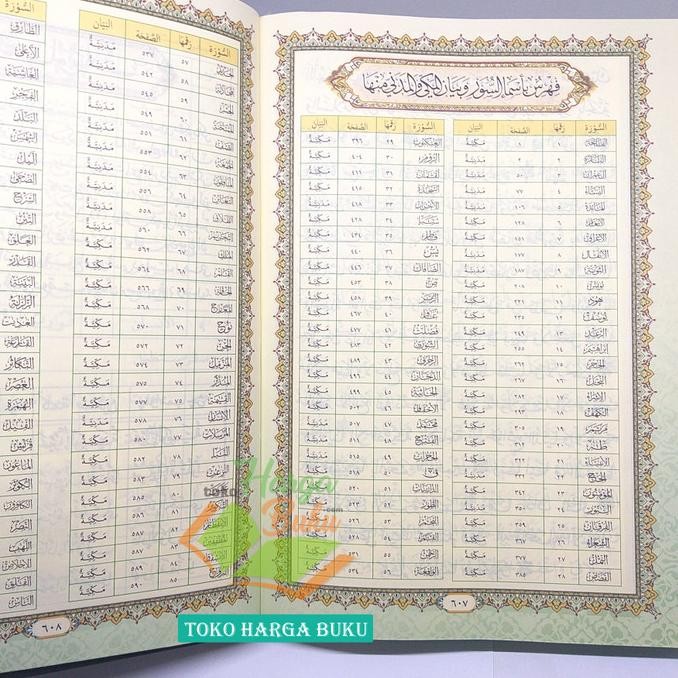 فهرس بأسماء السور وبيان المكي والمدني منها
السُّورَة رقمها الصفحة البَيَان
الفَاتِحَة ١ مَكيّة
البَقَرَة ٢ ٢ مَدنيّة
آل عِمرَان ٣ ٥٠ مَدنيّة
النِّسَاء ٤ ٧٧ مَدنيّة
المَائدة ٥ ١٠٦ مَدنيّة
الأنعَام ٦ ١٢٨ مَكيّة
الأعرَاف ٧ ١٥١ مَكيّة
الأنفَال ٨ ١٧٧ مَدنيّة
التوبَة ٩ ١٨٧ مَدنيّة
يُونس ١٠ ٢٠٨ مَكيّة
هُود ١١ ٢٢١ مَكيّة
يُوسُف ١٢ ٢٣٥ مَكيّة
الرّعد ١٣ ٢٤٩ مَدنيّة
إبراهِيم ١٤ ٢٥٥ مَكيّة
الحِجر ١٥ ٢٦٢ مَكيّة
النّحل ١٦ ٢٦٧ مَكيّة
الإسرَاء ١٧ ٢٨٢ مَكيّة
الكهف ١٨ ٢٩٣ مَكيّة
مَريَم ١٩ ٣٠٥ مَكيّة
طه ٢٠ ٣١٢ مَكيّة
الأنبيَاء ٢١ ٣٢٢ مَكيّة
الحَج ٢٢ ٣٣٢ مَدنيّة
المؤمنُون ٢٣ ٣٤٢ مَكيّة
النُّور ٢٤ ٣٥٠ مَدنيّة
الفُرقان ٢٥ ٣٥٩ مَكيّة
الشُّعَرَاء ٢٦ ٣٦٧ مَكيّة
النَّمل ٢٧ ٣٧٧ مَكيّة
القَصَص ٢٨ ٣٨٥ مَكيّة
السُّورَة رقمها الصفحة البَيَان
العَنكبوت ٢٩ ٣٩٦ مَكيّة
الرُّوم ٣٠ ٤٠٤ مَكيّة
لقمَان ٣١ ٤١١ مَكيّة
السَّجدَة ٣٢ ٤١٥ مَكيّة
الأحزَاب ٣٣ ٤١٨ مَدنيّة
سَبَأ ٣٤ ٤٢٨ مَكيّة
فَاطِر ٣٥ ٤٣٤ مَكيّة
يسٓ ٣٦ ٤٤٠ مَكيّة
الصَّافات ٣٧ ٤٤٦ مَكيّة
صٓ ٣٨ ٤٥٣ مَكيّة
الزُّمَر ٣٩ ٤٥٨ مَكيّة
غَافِر ٤٠ ٤٦٧ مَكيّة
فُصّلَت ٤١ ٤٧٧ مَكيّة
الشّورى ٤٢ ٤٨٣ مَكيّة
الزّخرُف ٤٣ ٤٨٩ مَكيّة
الدّخَان ٤٤ ٤٩٦ مَكيّة
الجَاثيَة ٤٥ ٤٩٩ مَكيّة
الأحقاف ٤٦ ٥٠٢ مَكيّة
محَمّد ٤٧ ٥٠٧ مَدنيّة
الفَتح ٤٨ ٥١١ مَدنيّة
الحُجرَات ٤٩ ٥١٥ مَدنيّة
قٓ ٥٠ ٥١٨ مَكيّة
الذّاريَات ٥١ ٥٢٠ مَكيّة
الطُّور ٥٢ ٥٢٣ مَكيّة
النّجم ٥٣ ٥٢٦ مَكيّة
القَمَر ٥٤ ٥٢٨ مَكيّة
الرَّحمن ٥٥ ٥٣١ مَدنيّة
الوَاقِعَة ٥٦ ٥٣٤ مَكيّة
٦٠٧
السُّورَة رقمها الصفحة البَيَان
الحَديد ٥٧ ٥٣٧ مَدنيّة
المجَادلة ٥٨ ٥٤٢ مَدنيّة
الحَشر ٥٩ ٥٤٥ مَدنيّة
المُمتَحنَة ٦٠ ٥٤٩ مَدنيّة
الصَّف ٦١ ٥٥١ مَدنيّة
الجُمُعَة ٦٢ ٥٥٣ مَدنيّة
المنَافِقون ٦٣ ٥٥٤ مَدنيّة
التغَابُن ٦٤ ٥٥٦ مَدنيّة
الطّلَاق ٦٥ ٥٥٨ مَدنيّة
التّحريم ٦٦ ٥٦٠ مَدنيّة
المُلك ٦٧ ٥٦٢ مَكيّة
القَلَم ٦٨ ٥٦٤ مَكيّة
الحَاقَّة ٦٩ ٥٦٦ مَكيّة
المعَارج ٧٠ ٥٦٨ مَكيّة
نُوح ٧١ ٥٧٠ مَكيّة
الجِن ٧٢ ٥٧٢ مَكيّة
المُزّمِّل ٧٣ ٥٧٤ مَكيّة
المدَّثِّر ٧٤ ٥٧٥ مَكيّة
القيَامَة ٧٥ ٥٧٧ مَكيّة
الإنسَان ٧٦ ٥٧٨ مَدنيّة
المُرسَلات ٧٧ ٥٨٠ مَكيّة
النّبَأ ٧٨ ٥٨٢ مَكيّة
٥٨٣ مَكيّة
٨٠ ٥٨٥ مَكيّة
٥٨٦ مَكيّة
٥٨٧ مَكيّة
٨٣ ٥٨٧ مَكيّة
٨٤ ٥٨٩ مَكيّة
البُرُوج ٨٥ ٥٩٠ مَكيّة
السُّورَة
الطَّارق
الأعلى
الغَاشيَة
الفَجر
البَلَد
الشّمس
الليل
الضّحى
الشّرح
التِّين
العَلق
القَدر
البَيّنَة
الزّلزلة
العَاديَات
القَارعَة
التّكاثر
العَصر
الهُمَزة
الفِيل
قُرَيش
المَاعون
الكوثَر
الكافِرون
النّصر
المَسَد
الإخلَاص
الفَلَق
النّاس
٦٠٨
toko
Harga
Buku
.com
TOKO HARGA BUKU